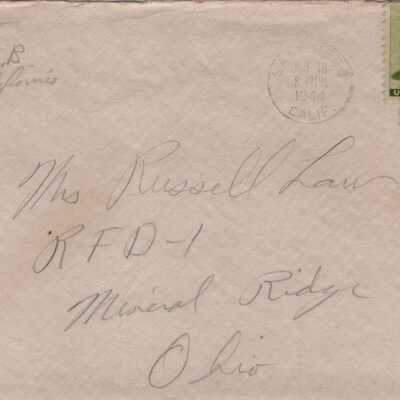 B
1944
CALIF.
U
Mrs Russell Law
RFD-1
Mineral Ridge
Ohio